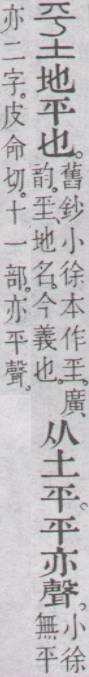 地平也。
舊鈔小徐本作。廣
韵。地名。今義也。
从土平。平亦聲。
小徐
無平
亦二字。皮命切。十一部。亦平聲。